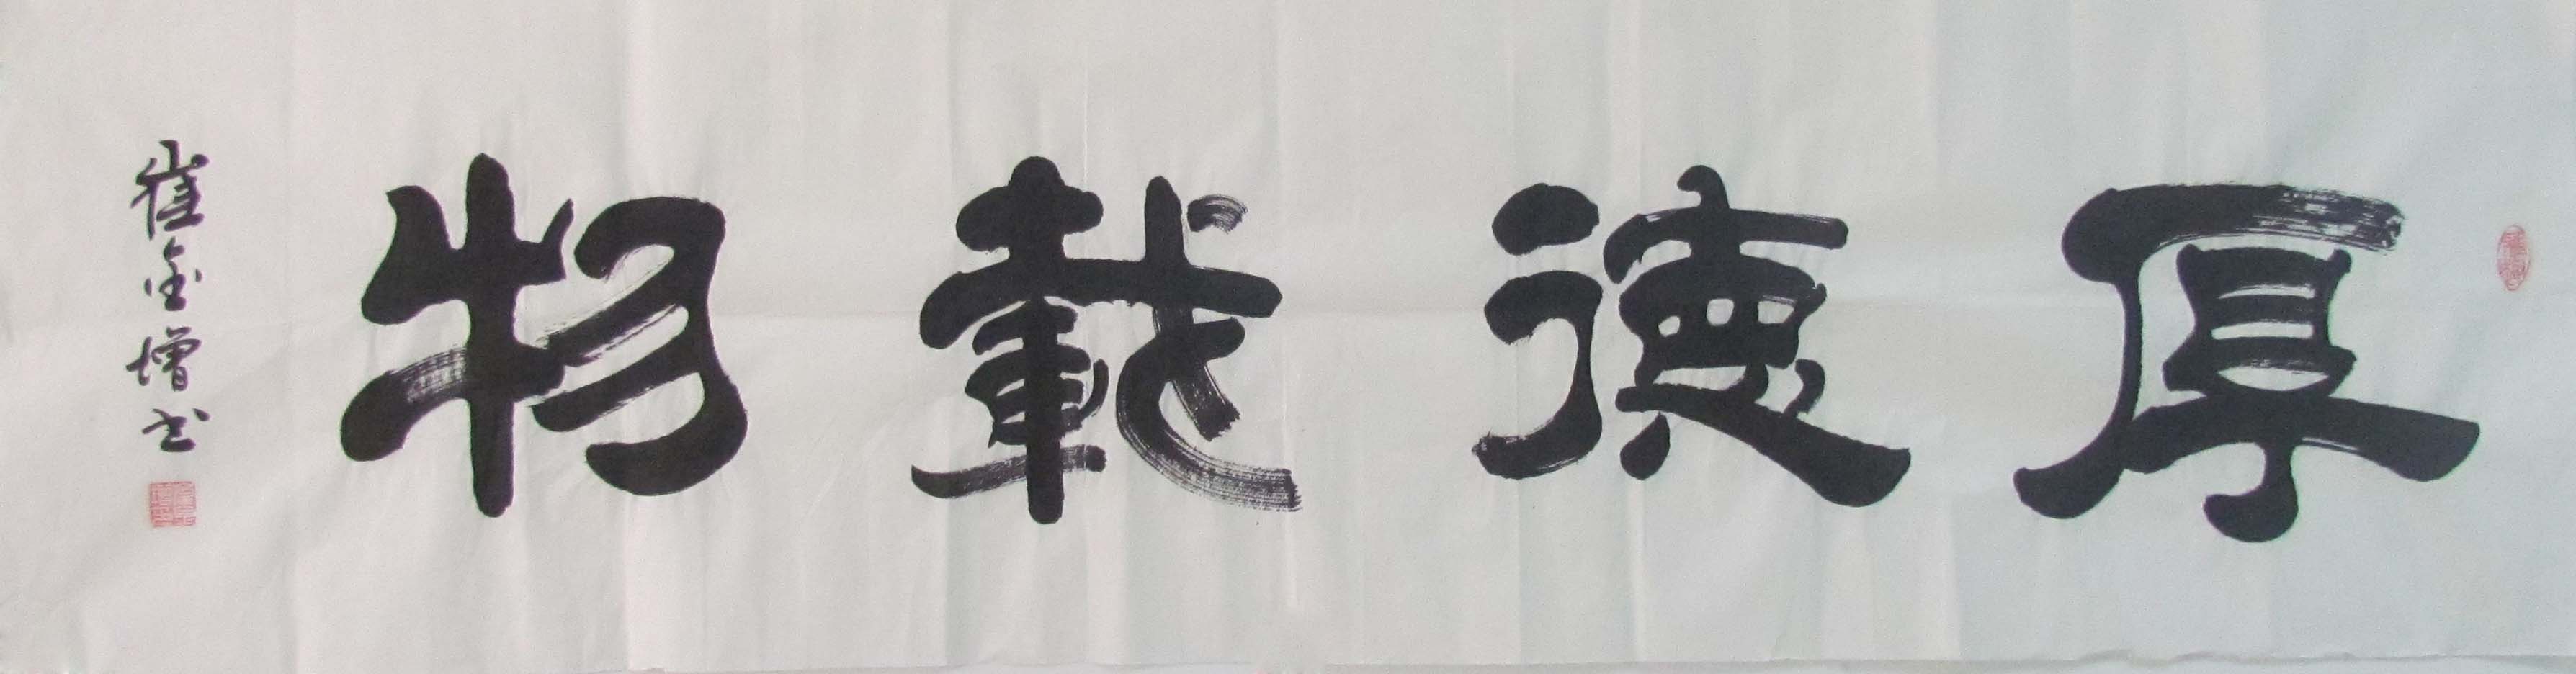 厚德載物
崔金增书